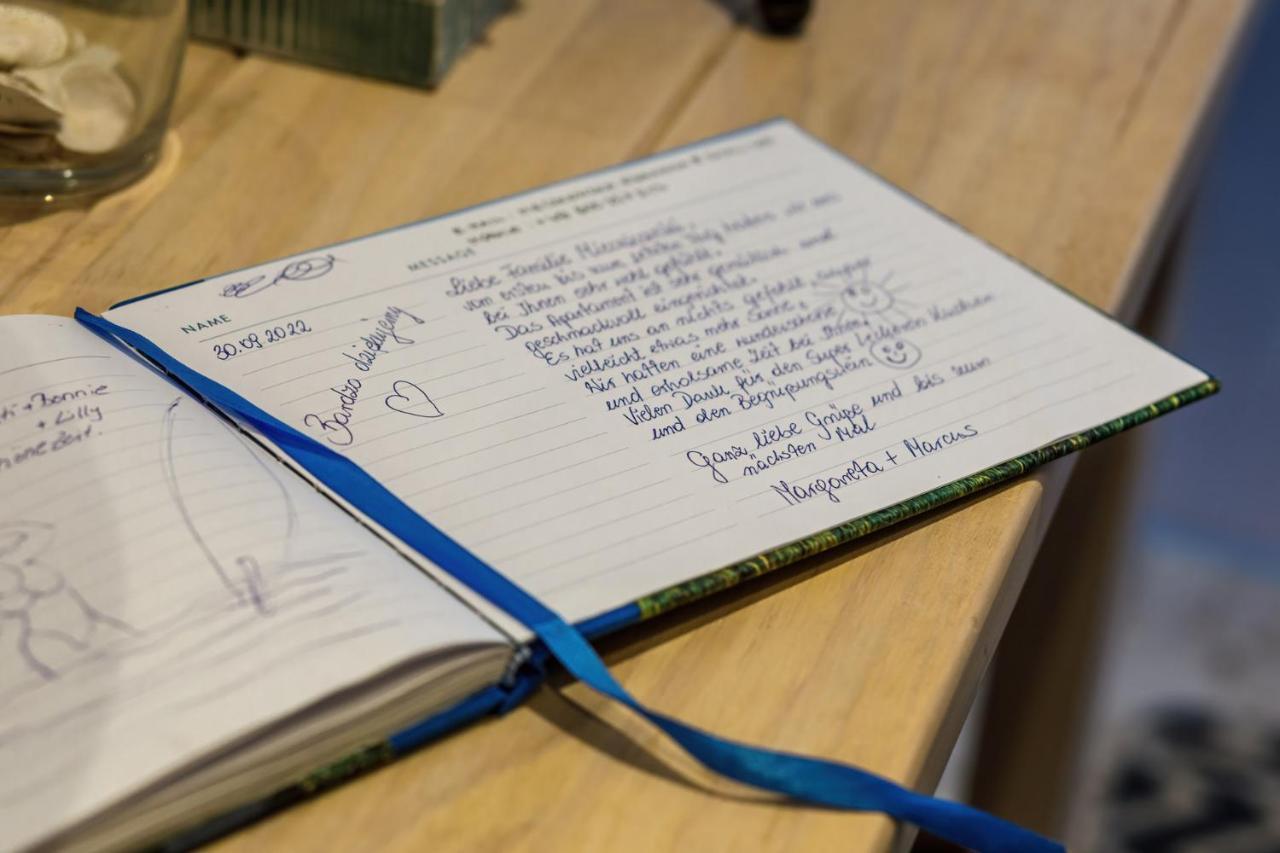 ti + Bonnie
+ Lilly
NAME
30.09.2022
Bardzo dziękujemy
MESSAGE
Liebe Familie
vom ersten bis zum letzten Tag haben wir uns
bei Ihnen sehr wohl gefühlt.
Das Apartment ist sehr gemütlich und
geschmackvoll eingerichtet.
Es hat uns an nichts gefehlt, außer
vielleicht etwas mehr Sonne.
Wir hatten eine wunderschöne
und erholsame Zeit bei Ihnen!
Vielen Dank für den Super Leckeren Kuchen
und den Begrüßungswein
Ganz liebe Grüße und bis zum
nächsten Mal
Margareta + Marcus